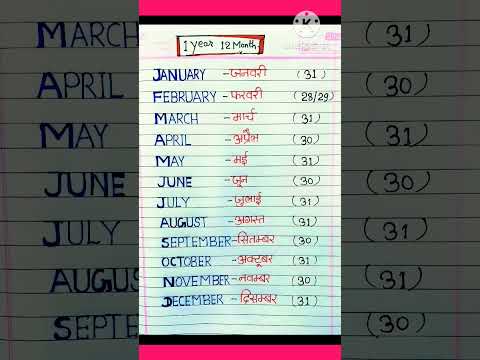 1 Year 12 Month
JANUARY - जनवरी (31)
FEBRUARY - फरवरी (28/29)
MARCH - मार्च (31)
APRIL - अप्रैल (30)
MAY - मई (31)
JUNE - जून (30)
JULY - जुलाई (31)
AUGUST - अगस्त (31)
SEPTEMBER - सितम्बर (30)
OCTOBER - अक्टूबर (31)
NOVEMBER - नवम्बर (30)
DECEMBER - दिसम्बर (31)
MARCH (31)
APRIL (30)
MAY (31)
JUNE (30)
JULY (31)
AUGUS (31)
SEPTE (30)